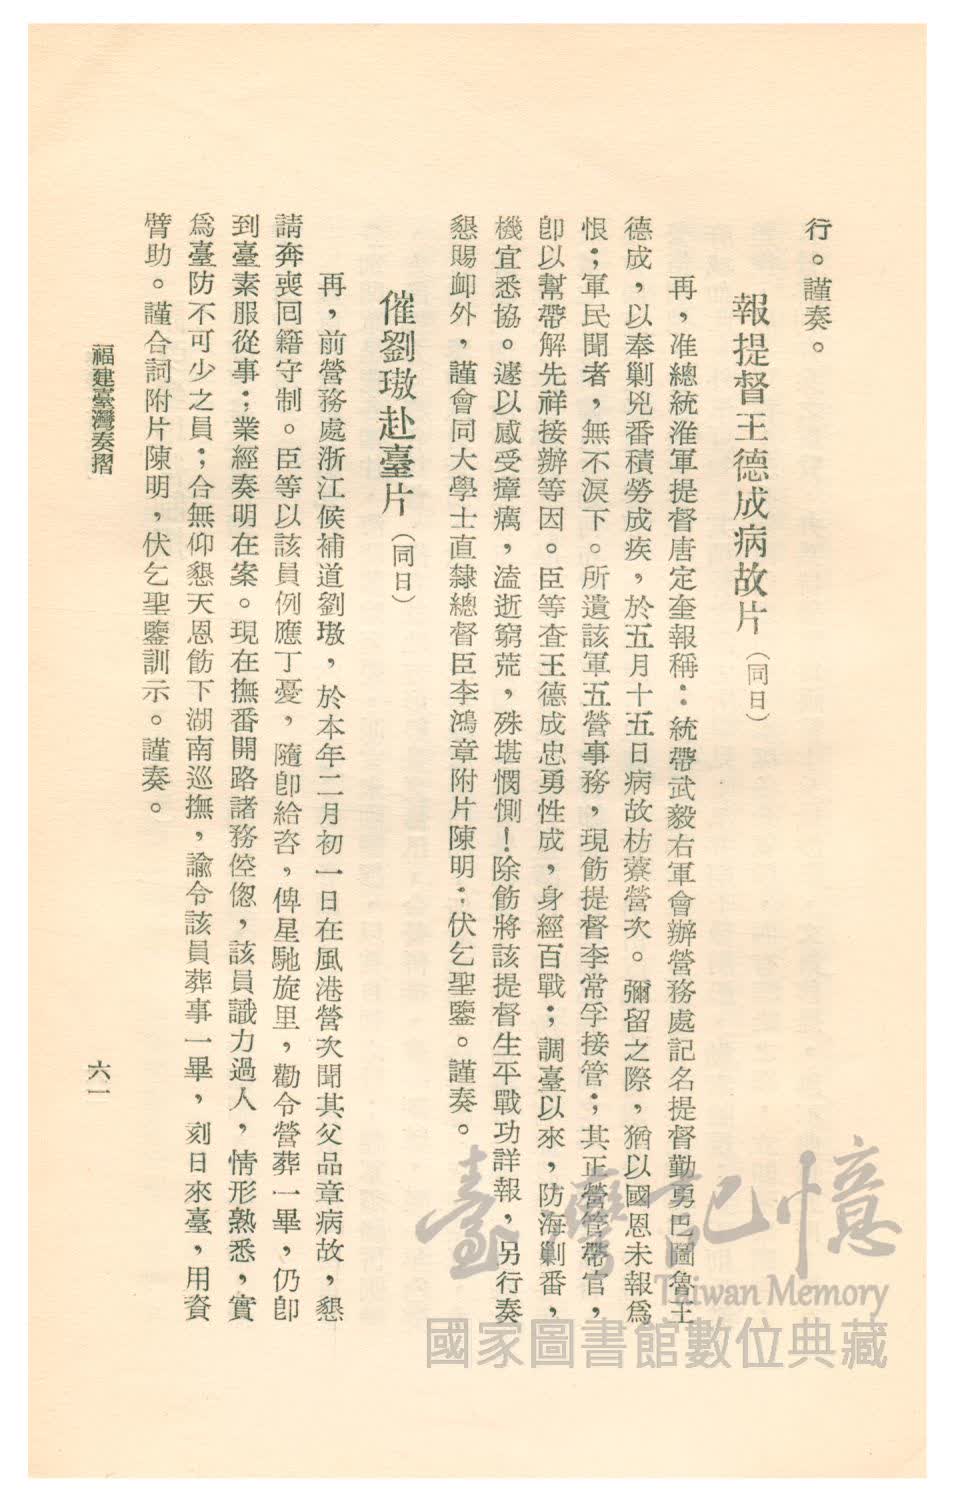 行。謹奏。
報提督王德成病故片（同日）
再，准總統淮軍提督唐定奎報稱：統帶武毅右軍會辦營務處記名提督勤勇巴圖魯王
德成，以奉剿兇番積勞成疾，於五月十五日病故枋藔營次。彌留之際，猶以國恩未報爲
恨；軍民聞者，無不淚下。所遺該軍五營事務，現飭提督李常孚接管；其正營管帶官，
卽以幫帶解先祥接辦等因。臣等查王德成忠勇性成，身經百戰；調臺以來，防海剿番，
機宜悉協。遽以感受瘴癘，溘逝窮荒，殊堪憫惻！除飭將該提督生平戰功詳報，另行奏
懇賜卹外，謹會同大學士直隸總督臣李鴻章附片陳明；伏乞聖鑒。謹奏。
催劉璈赴臺片（同日）
再，前營務處浙江候補道劉璈，於本年二月初一日在風港營次聞其父品章病故，懇
請奔喪回籍守制。臣等以該員例應丁憂，隨卽給咨，俾星馳旋里，勸令營葬一畢，仍卽
到臺素服從事；業經奏明在案。現在撫番開路諸務倥偬，該員識力過人，情形熟悉，實
爲臺防不可少之員；合無仰懇天恩飭下湖南巡撫，諭令該員葬事一畢，刻日來臺，用資
臂助。謹合詞附片陳明，伏乞聖鑒訓示。謹奏。
福建臺灣奏摺
六一
臺灣記憶
Taiwan Memory
國家圖書館數位典藏